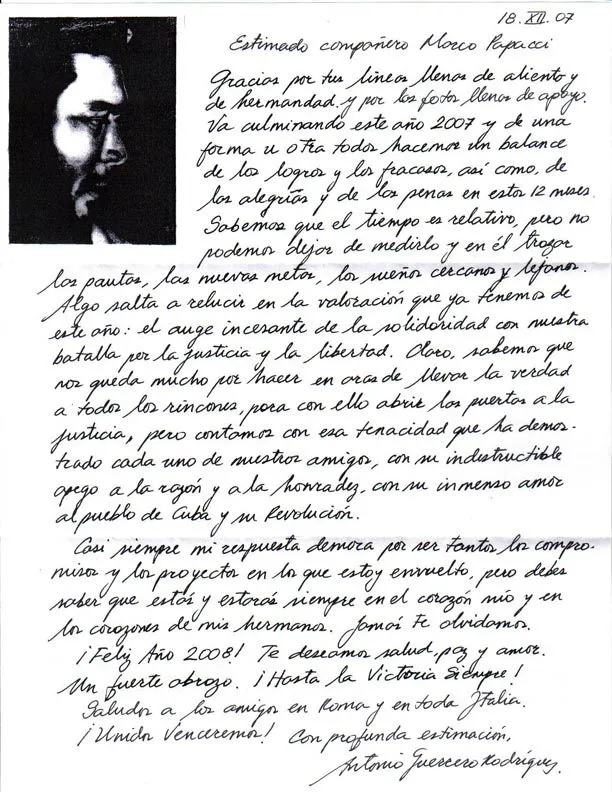 18. XII. 07
Estimado compañero Marco Papacci
Gracias por tus líneas llenas de aliento y
de hermandad, y por las fotos llenas de apoyo.
Va culminando este año 2007 y de una
forma u otra todos hacemos un balance
de los logros y los fracasos, así como, de
las alegrías y de las penas en estos 12 meses.
Sabemos que el tiempo es relativo, pero no
podemos dejar de medirlo y en él trazar
las pautas, las nuevas metas, los sueños cercanos y lejanos.
Algo salta a relucir en la valoración que ya tenemos de
este año: el auge incesante de la solidaridad con nuestra
batalla por la justicia y la libertad. Claro, sabemos que
nos queda mucho por hacer en aras de llevar la verdad
a todos los rincones, para con ello abrir las puertas a la
justicia, pero contamos con esa tenacidad que ha demos-
trado cada uno de nuestros amigos, con su indestructible
apego a la razón y a la honradez, con su inmenso amor
al pueblo de Cuba y su Revolución.
Casi siempre mi respuesta demora por ser tantos los compro-
misos y los proyectos en los que estoy envuelto, pero debes
saber que estás y estarás siempre en el corazón mío y en
los corazones de mis hermanos. Jamás te olvidamos.
¡Feliz Año 2008! Te deseamos salud, paz y amor.
Un fuerte abrazo. ¡Hasta la Victoria Siempre!
Saludos a los amigos en Roma y en toda Italia.
¡Unidos Venceremos! Con profunda estimación,
Antonio Guerrero Rodríguez.